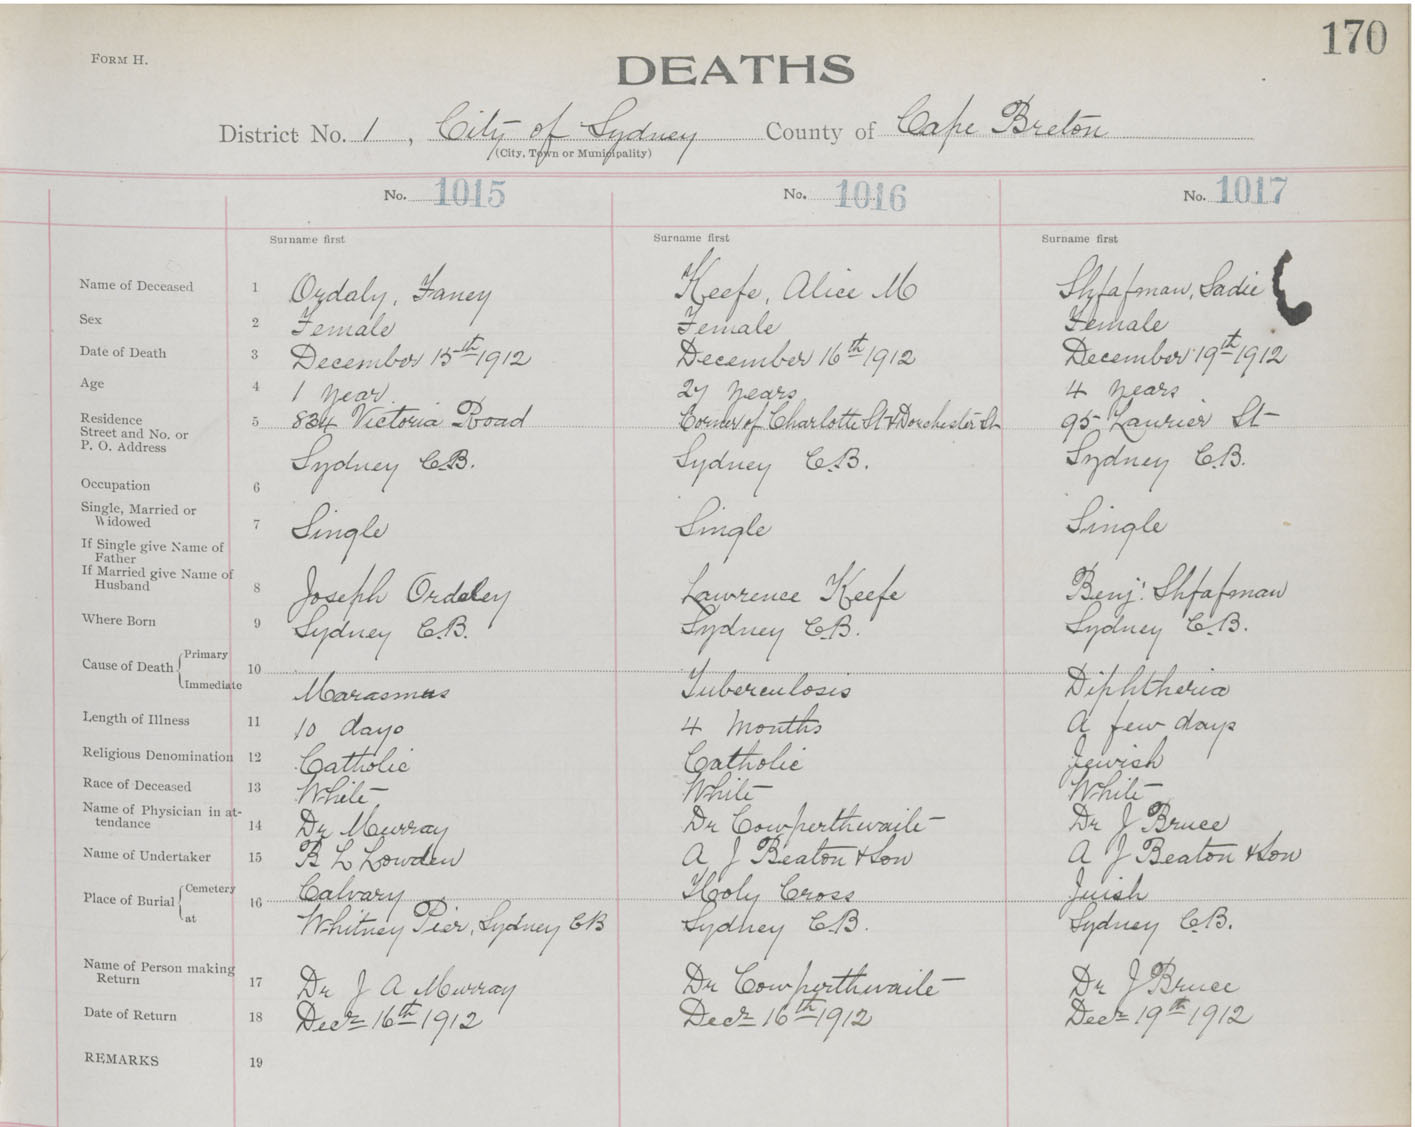 170
FORM H.
DEATHS
District No. 1, City of Sydney County of Cape Breton
(City, Town or Municipality)
No. 1015 No. 1016 No. 1017
Surname first Surname first Surname first
Name of Deceased 1 Ordaly, Faney Keefe, Alice M Shfafman, Sadie
Sex 2 Female Female Female
Date of Death 3 December 15th 1912 December 16th 1912 December 19th 1912
Age 4 1 year. 27 years 4 years
Residence 5 834 Victoria Road Corner of Charlotte St & Dorchester St 95 Laurier St
Street and No. or
P. O. Address Sydney C.B. Sydney C.B. Sydney C.B.
Occupation 6
Single, Married or
Widowed 7 Single Single Single
If Single give Name of
Father
If Married give Name of
Husband 8 Joseph Ordeley Lawrence Keefe Benj. Shfafman
Where Born 9 Sydney C.B. Sydney C.B. Sydney C.B.
Cause of Death Primary 10
Immediate Marasmus Tuberculosis Diphtheria
Length of Illness 11 10 days 4 Months A few days
Religious Denomination 12 Catholic Catholic Jewish
Race of Deceased 13 White White White
Name of Physician in at-
tendance 14 Dr Murray Dr Cowperthwaite Dr J Bruce
Name of Undertaker 15 R L Lowden A J Beaton & Son A J Beaton & Son
Place of Burial Cemetery 16 Calvary Holy Cross Juish
at Whitney Pier, Sydney CB Sydney C.B. Sydney C.B.
Name of Person making
Return 17 Dr J A Murray Dr Cowperthwaite Dr J Bruce
Date of Return 18 Decr 16th 1912 Decr 16th 1912 Decr 19th 1912
REMARKS 19